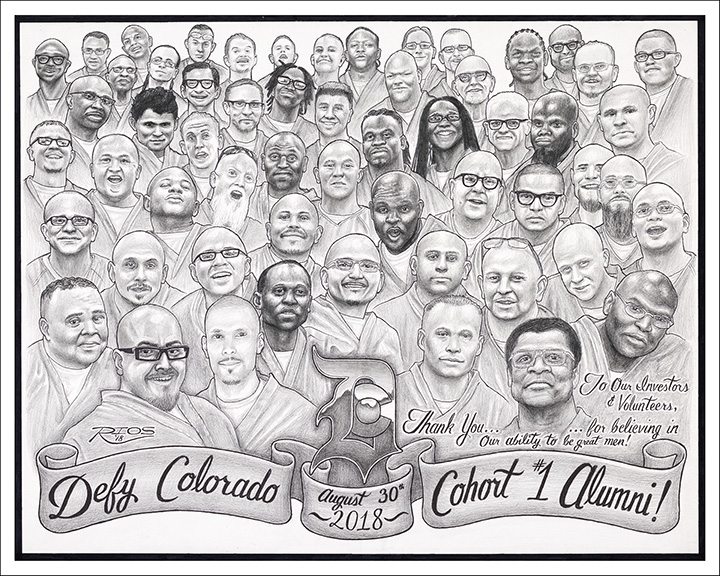 To Our Investors
& Volunteers,
Thank You... ...for believing in
Our ability to be great men!
RIOS
'18
Defy Colorado
D
August 30th
2018
Cohort #1 Alumni!